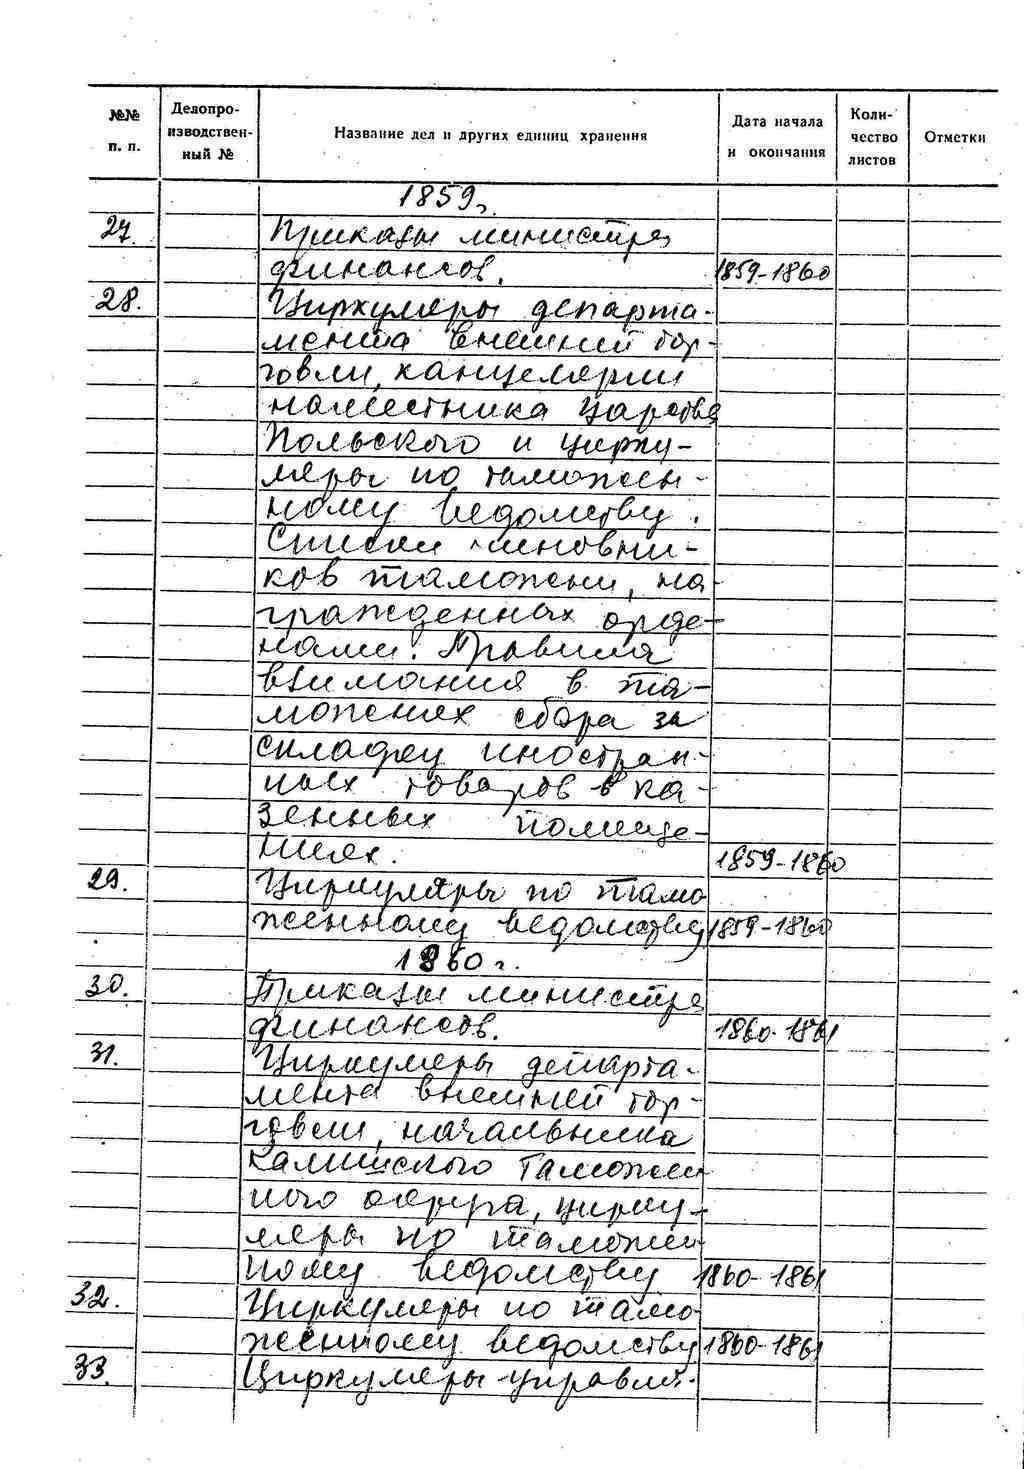 №№ п. п.
Делопро-
изводствен-
ный №
Название дел и других единиц хранения
Дата начала
и окончания
Коли-
чество
листов
Отметки
1859 г.
27. Приказы министра
финансов. 1859-1860
28. Циркуляры департа-
мента внешней тор-
говли, канцелярии
наместника Царства
Польского и цирку-
ляры по таможен-
ному ведомству.
Списки чиновни-
ков таможени, на-
гражденных орде-
нами. Правила
взимания в та-
моженях сбора за
складку иностран-
ных товаров в ка-
зенных помеще-
ниях. 1859-1860
29. Циркуляры по тамо
женному ведомству 1859-1860
1860 г.
30. Приказы министра
финансов. 1860-1861
31. Циркуляры департа-
мента внешней тор-
говли, начальника
Калишского Таможен
ного округа, цирку-
ляры по таможен
ному ведомству 1860-1861
32. Циркуляры по тамо-
женному ведомству 1860-1861
33. Циркуляры управля-